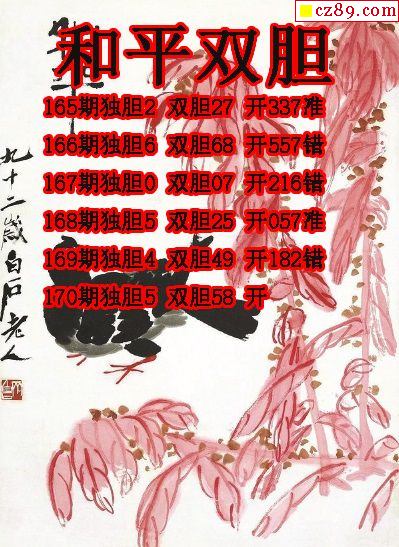 cz89.com
和平双胆
165期独胆2 双胆27 开337准
166期独胆6 双胆68 开557错
167期独胆0 双胆07 开216错
168期独胆5 双胆25 开057准
169期独胆4 双胆49 开182错
170期独胆5 双胆58 开
九十二歲白石老人